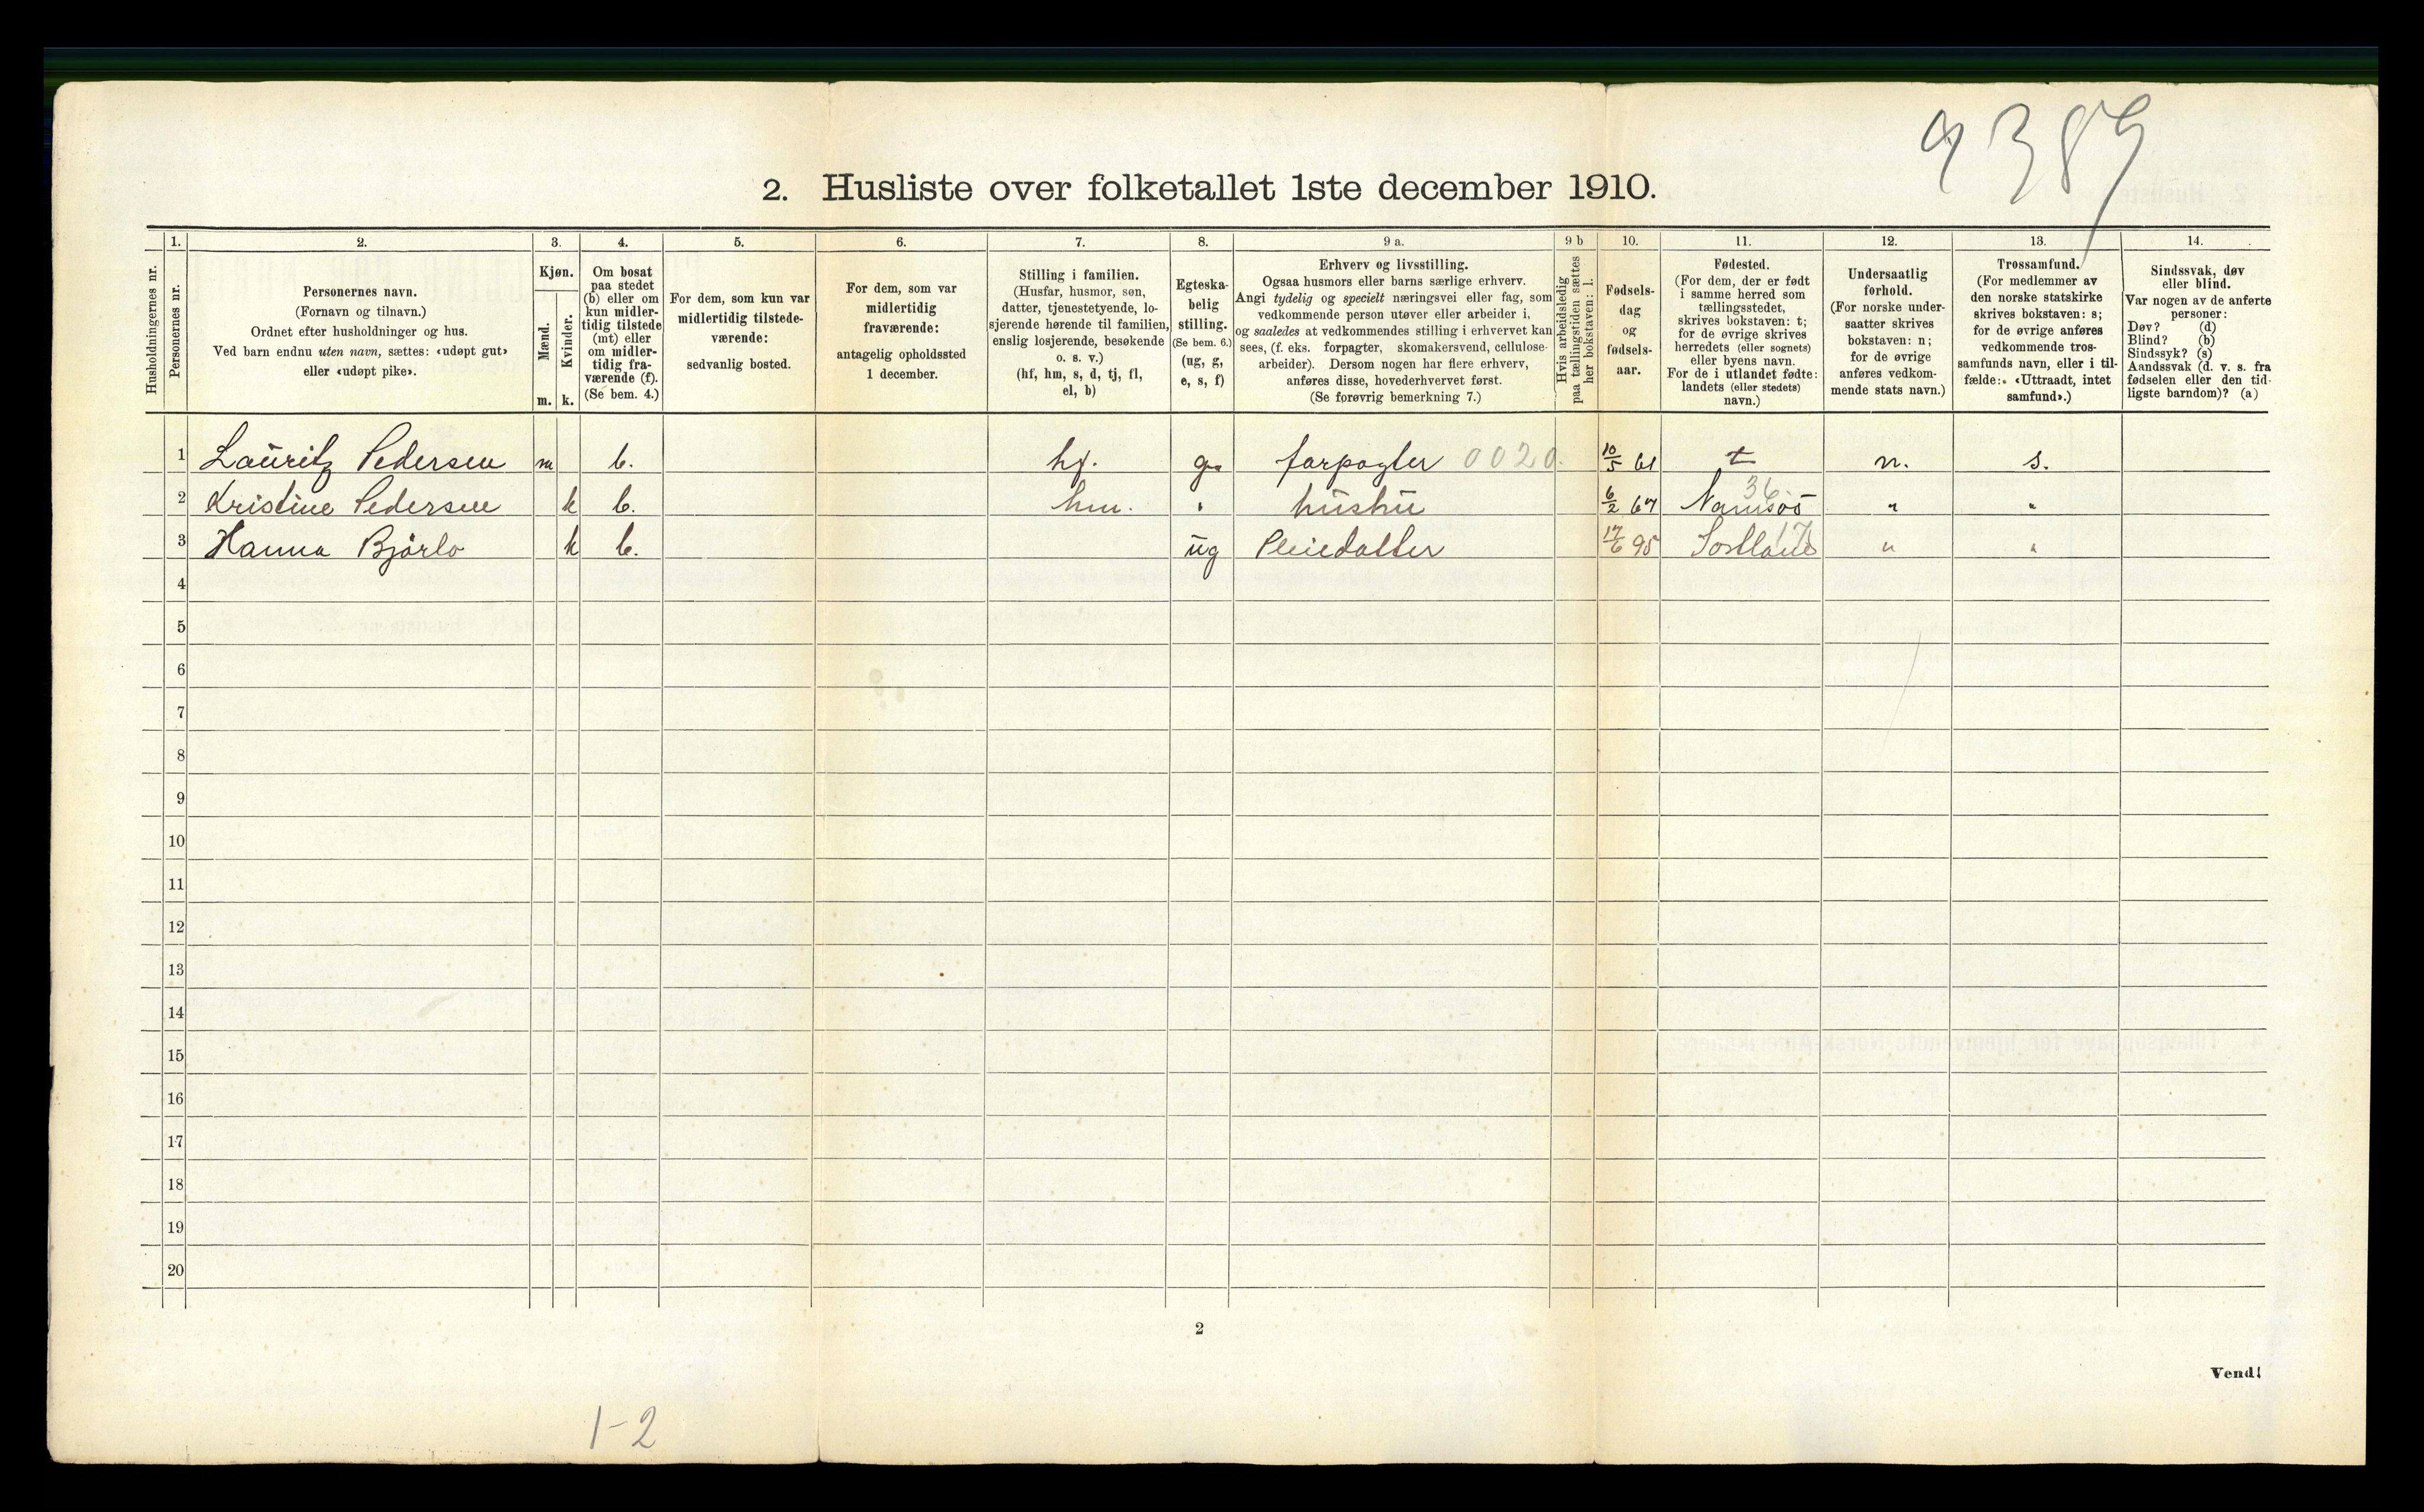 9389
2. Husliste over folketallet 1ste december 1910.
Husholdningernes nr.
1.
Personernes nr.
2.
Personernes navn.
(Fornavn og tilnavn.)
Ordnet efter husholdninger og hus.
Ved barn endnu uten navn, sættes: «udøpt gut»
eller «udøpt pike».
3.
Kjøn.
Mænd.
Kvinder.
m. k.
4.
Om bosat
paa stedet
(b) eller om
kun midler-
tidig tilstede
(mt) eller
om midler-
tidig fra-
værende (f).
(Se bem. 4.)
5.
For dem, som kun var
midlertidig tilstede-
værende:
sedvanlig bosted.
6.
For dem, som var
midlertidig
fraværende:
antagelig opholdssted
1 december.
7.
Stilling i familien.
(Husfar, husmor, søn,
datter, tjenestetyende, lo-
sjerende hørende til familien,
enslig losjerende, besøkende
o. s. v.)
(hf, hm, s, d, tj, fl,
el, b)
8.
Egteska-
belig
stilling.
(Se bem. 6.)
(ug, g,
e, s, f)
9 a.
Erhverv og livsstilling.
Ogsaa husmors eller barns særlige erhverv.
Angi tydelig og specielt næringsvei eller fag, som
vedkommende person utøver eller arbeider i,
og saaledes at vedkommendes stilling i erhvervet kan
sees, (f. eks. forpagter, skomakersvend, cellulose-
arbeider). Dersom nogen har flere erhverv,
anføres disse, hovederhvervet først.
(Se forøvrig bemerkning 7.)
9 b
Hvis arbeidsledig
paa tællingstiden sættes
her bokstaven: l.
10.
Fødsels-
dag
og
fødsels-
aar.
11.
Fødested.
(For dem, der er født
i samme herred som
tællingsstedet,
skrives bokstaven: t;
for de øvrige skrives
herredets (eller sognets)
eller byens navn.
For de i utlandet fødte:
landets (eller stedets)
navn.)
12.
Undersaatlig
forhold.
(For norske under-
saatter skrives
bokstaven: n;
for de øvrige
anføres vedkom-
mende stats navn.)
13.
Trossamfund.
(For medlemmer av
den norske statskirke
skrives bokstaven: s;
for de øvrige anføres
vedkommende tros-
samfunds navn, eller i til-
fælde: «Uttraadt, intet
samfund».)
14.
Sindssvak, døv
eller blind.
Var nogen av de anførte
personer:
Døv? (d)
Blind? (b)
Sindssyk? (s)
Aandssvak (d. v. s. fra
fødselen eller den tid-
ligste barndom)? (a)
1 Lauritz Pedersen m b. hf. g. forpagter 0020. 10/5 61 t n. s.
2 Kristine Pedersen k b. hm. " hustru 6/2 67 Namsos 36 " "
3 Hanna Bjørlo k b. ug Pleiedatter 17/6 95 Sortland 17 " "
4
5
6
7
8
9
10
11
12
13
14
15
16
17
18
19
20
2
Vend!
1-2